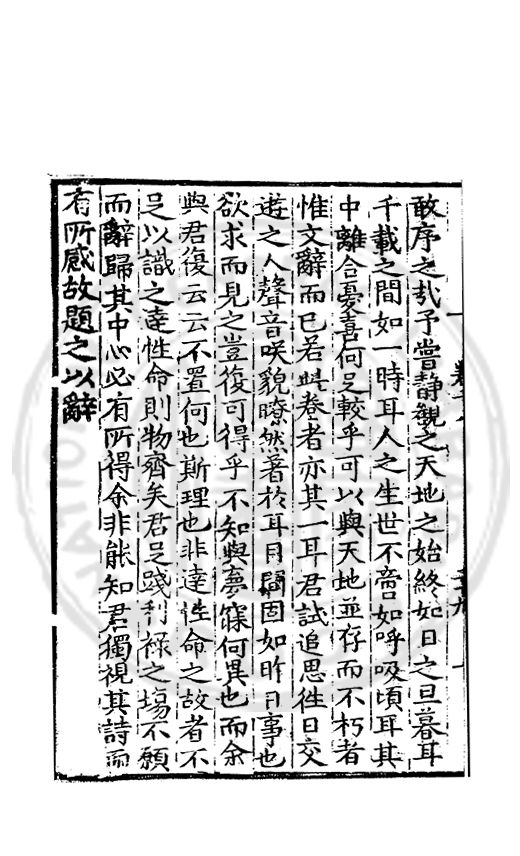 敢序之哉予嘗靜觀之天地之始終如日之旦暮耳
千載之間如一時耳人之生世不啻如呼吸頃耳其
中離合憂喜何足較乎可以與天地並存而不朽者
惟文辭而已若此卷者亦其一耳君試追思徃日交
遊之人聲音咲貌瞭然著於耳目間固如昨日事也
欲求而見之豈復可得乎不知與夢寐何異也而余
與君復云云不置何也斯理也非達性命之故者不
足以識之達性命則物齊矣君足踐利祿之塲不願
而辭歸其中心必有所得余非能知君獨視其詩而
有所感故題之以辭